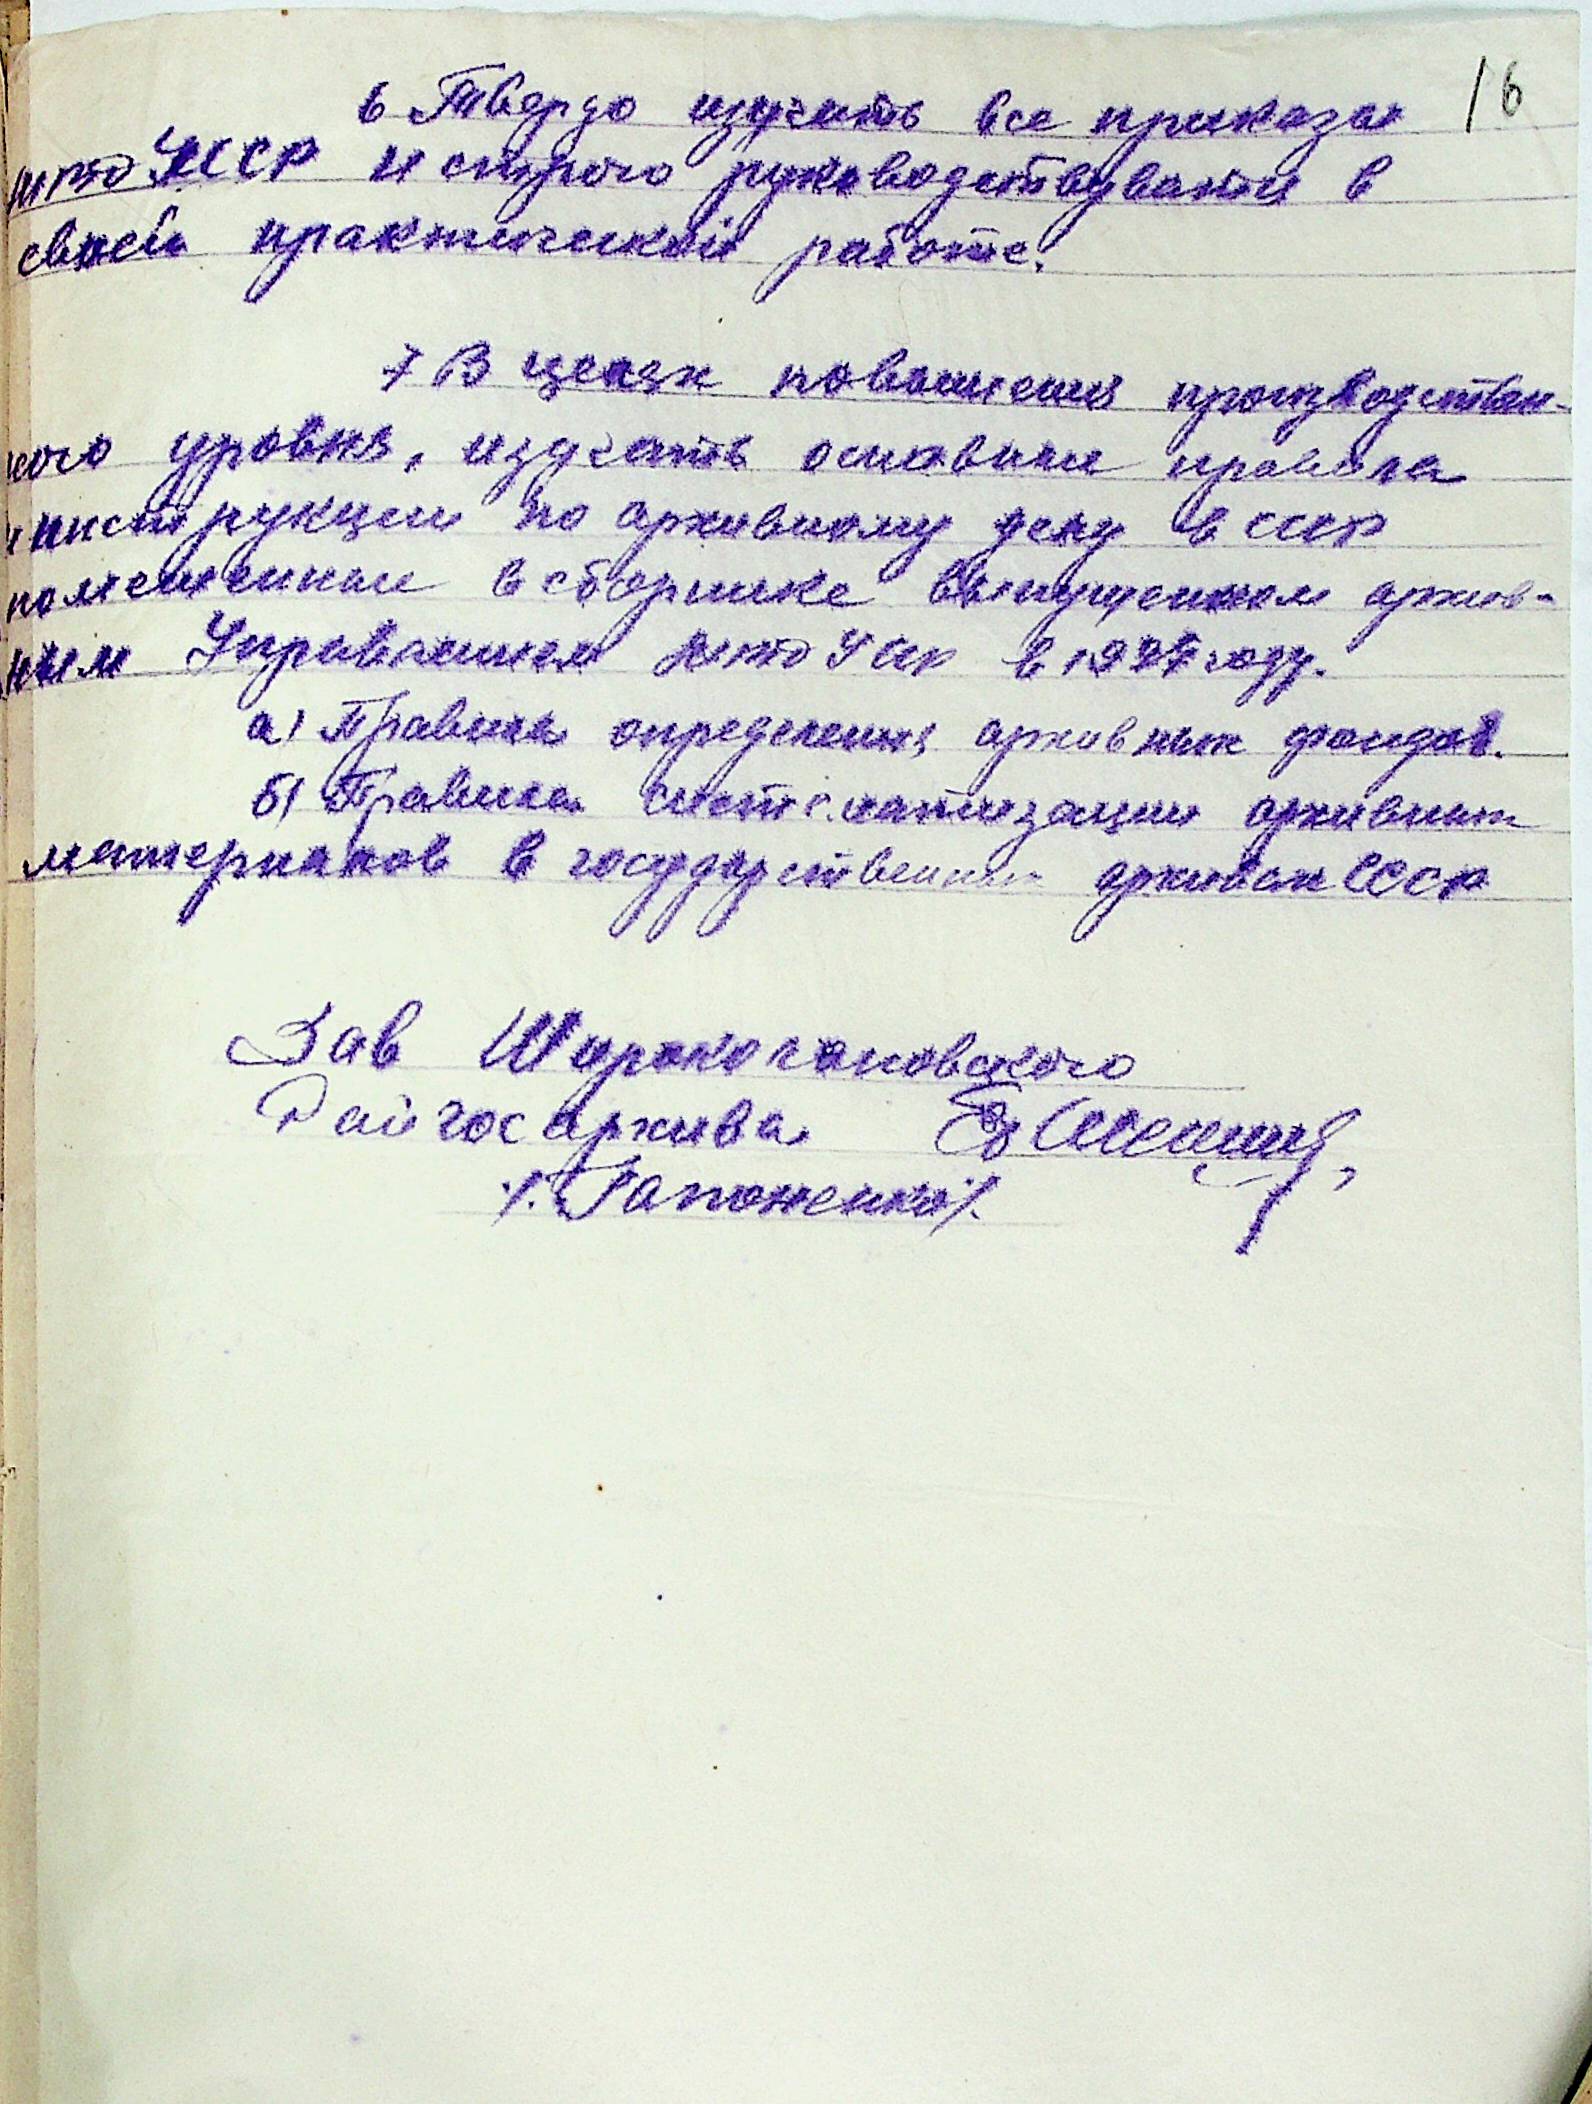 16
6 Твердо изучить все приказы
МГБ УССР и строго руководствувати в
своей практической работе.
7 В целях повышения производствен-
ного уровня, изучать основные правила
и инструкции по архивному делу в СССР
помещенные в сборнике выпущенном архив-
ным Управлением УССР в 1947 году.
а) Правила определения архивных фондов.
б) Правила систематизации архивных
материалов в государственных архивах СССР
Зав Широколановского
Райгосархива
/. Гапоненко/.